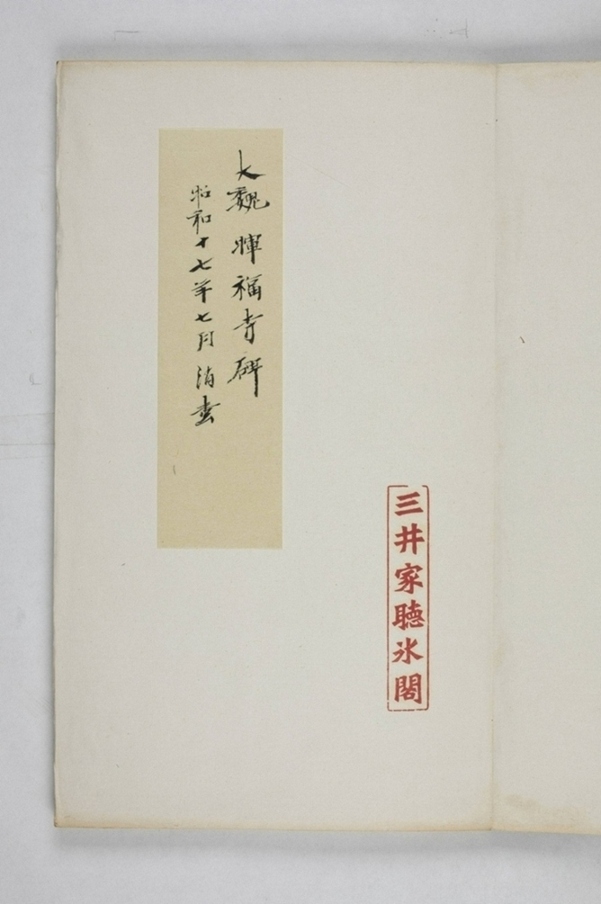 大魏暉福寺碑
昭和十七年七月清書
三井家聴氷閣